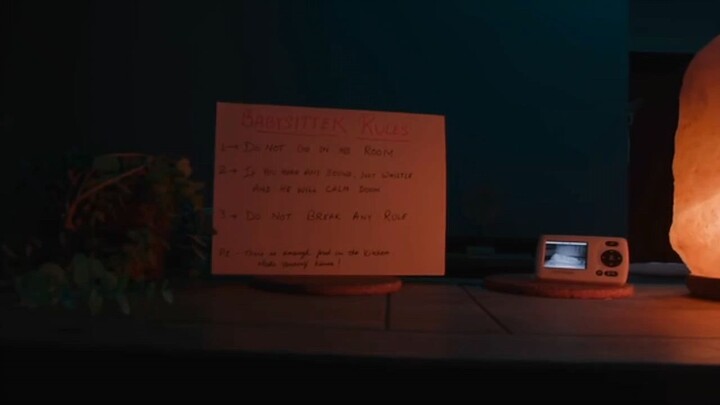 BABYSITTER RULES
1→ DO NOT GO IN HIS ROOM
2→ IF YOU HEAR ANY SOUND, JUST WHISTLE
AND HE WILL CALM DOWN
3→ DO NOT BREAK ANY RULE
enough food in the kitchen